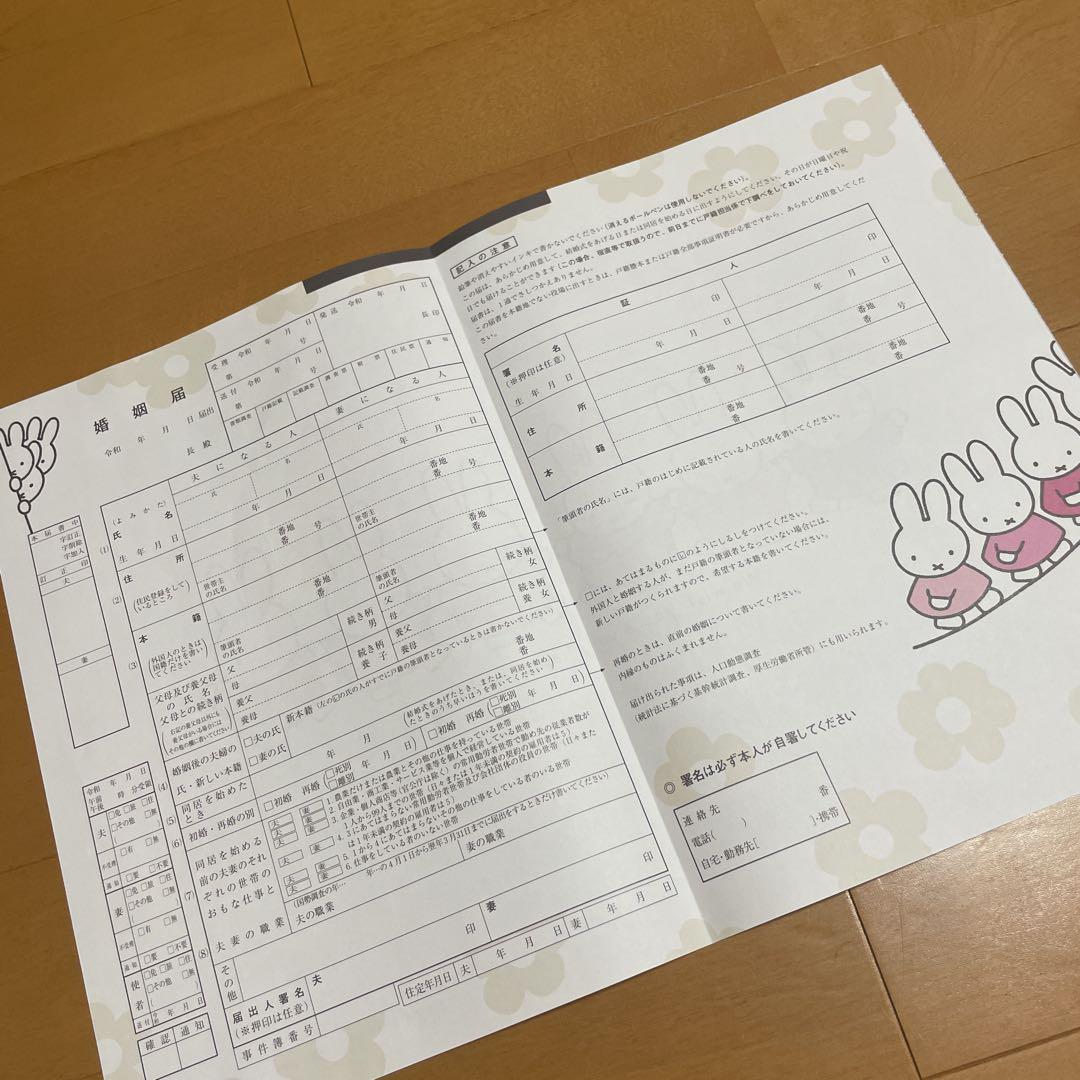 婚姻届
令和 年 月 日 届出
長 殿
受理 令和 年 月 日
第 号
送付 令和 年 月 日
第 号
発送 令和 年 月 日
長印
書類調査 戸籍記載 記載調査 調査票 附票 住民票 通知
本届書中
字訂正
字削除
字加入
訂正印
夫
妻
夫になる人 妻になる人
(よみかた)
(1) 氏名
氏 名 氏 名
生年月日 年 月 日 年 月 日
(2) 住所
(住民登録をしているところ)
番地 番 号 番地 番 号
世帯主の氏名 世帯主の氏名
(3) 本籍
(外国人のときは国籍だけを書いてください)
番地 番 番地 番
筆頭者の氏名 筆頭者の氏名
父母及び養父母の氏名
父母との続き柄
(右記の養父母以外にも養父母がいる場合にはその他の欄に書いてください)
父 続き柄 父 続き柄
母 男 母 女
養父 続き柄 養父 続き柄
養母 養子 養母 養女
(4) 婚姻後の夫婦の氏・新しい本籍
□夫の氏
□妻の氏
新本籍(左の☑の氏の人がすでに戸籍の筆頭者となっているときは書かないでください)
番地 番
(5) 同居を始めたとき
年 月
(結婚式をあげたとき、または、同居を始めたときのうち早いほうを書いてください)
(6) 初婚・再婚の別
□初婚 再婚(□死別 □離別 年 月 日)
□初婚 再婚(□死別 □離別 年 月 日)
(7) 同居を始める前の夫妻のそれぞれの世帯のおもな仕事と
夫 妻 1. 農業だけまたは農業とその他の仕事を持っている世帯
夫 妻 2. 自由業・商工業・サービス業等を個人で経営している世帯
夫 妻 3. 企業・個人商店等(官公庁は除く)の常用勤労者世帯で勤め先の従業者数が1人から99人までの世帯(日々または1年未満の契約の雇用者は5)
夫 妻 4. 3にあてはまらない常用勤労者世帯及び会社団体の役員の世帯(日々または1年未満の契約の雇用者は5)
夫 妻 5. 1から4にあてはまらないその他の仕事をしている者のいる世帯
夫 妻 6. 仕事をしている者のいない世帯
(8) 夫妻の職業
(国勢調査の年…年…の4月1日から翌年3月31日までに届出をするときだけ書いてください)
夫の職業 妻の職業
その他
届出人署名
(※押印は任意)
夫 印 妻 印
事件簿番号
住定年月日 夫 年 月 日 妻 年 月 日
令和 年 月 日
午前 午後 時 分受領
夫 □免 □旅 □住
□その他 □無
不受理 □有 □無
通知 □要 □不要
妻 □免 □旅 □住
□その他 □無
不受理 □有 □無
通知 □要 □不要
使者 □免 □旅 □住
□その他 □無
送付 令和 年 月 日
確認 通知
記入の注意
鉛筆や消えやすいインキで書かないでください(消えるボールペンは使用しないでください)。
この届は、あらかじめ用意して、結婚式をあげる日または同居を始める日に出すようにしてください。その日が日曜日や祝
日でも届けることができます(この場合、宿直等で取扱うので、前日までに戸籍担当係で下調べをしておいてください)。
届書は、1通でさしつかえありません。
この届書を本籍地でない役場に出すときは、戸籍謄本または戸籍全部事項証明書が必要ですから、あらかじめ用意してくだ
さい。
証人
署名
(※押印は任意)
印 印
生年月日 年 月 日 年 月 日
住所 番地 番 号 番地 番 号
本籍 番地 番 番地 番
「筆頭者の氏名」には、戸籍のはじめに記載されている人の氏名を書いてください。
□には、あてはまるものに☑のようにしるしをつけてください。
外国人と婚姻する人が、まだ戸籍の筆頭者となっていない場合には、
新しい戸籍がつくられますので、希望する本籍を書いてください。
再婚のときは、直前の婚姻について書いてください。
内縁のものはふくまれません。
届け出られた事項は、人口動態調査
(統計法に基づく基幹統計調査、厚生労働省所管)にも用いられます。
◎ 署名は必ず本人が自署してください
連絡先
電話( ) 番
自宅・勤務先[ ]・携帯